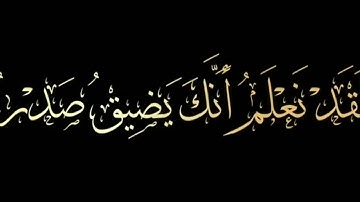 قَدْ نَعْلَمُ أَنَّكَ يَضِيقُ صَدْرُ